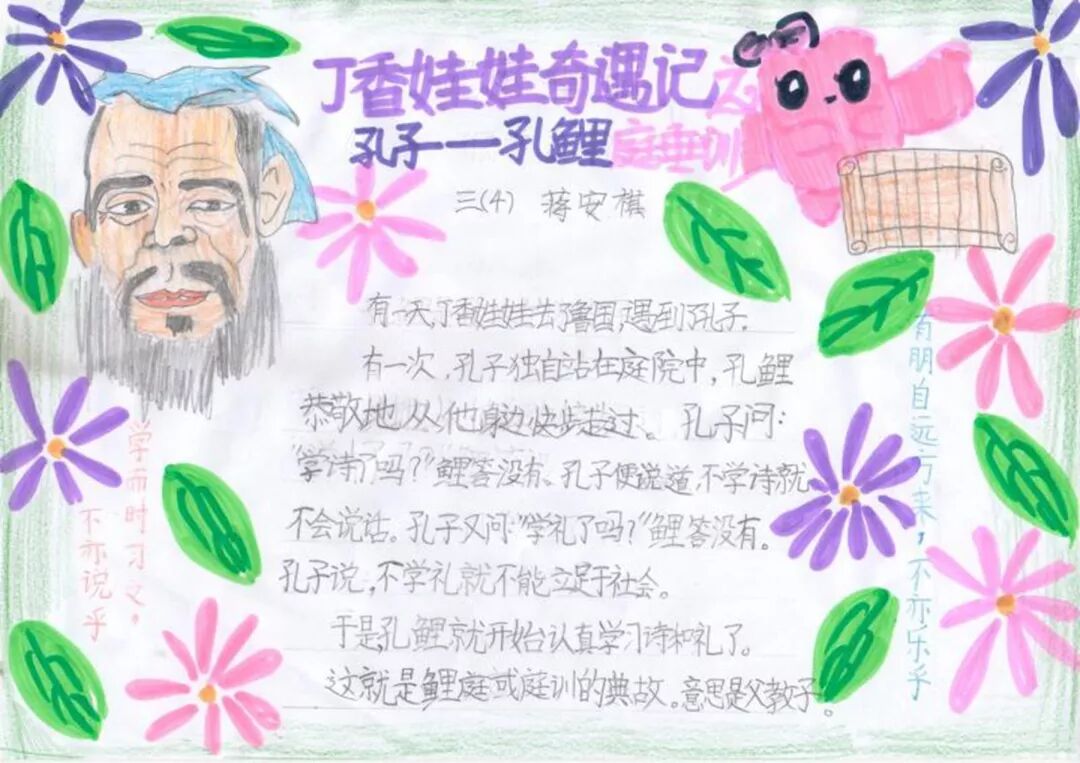 丁香娃娃奇遇记之
孔子——孔鲤庭垂训
三(4) 蒋安棋
有一天,丁香娃娃去了鲁国,遇到了孔子.
有一次,孔子独自站在庭院中,孔鲤
恭敬地从他身边快步走过。孔子问:
"学诗了吗?"鲤答没有。孔子便说道,不学诗就
不会说话。孔子又问:"学礼了吗?"鲤答没有。
孔子说,不学礼就不能立足于社会。
于是,孔鲤就开始认真学习诗和礼了。
这就是鲤庭或庭训的典故。意思是父教子。
学而时习之,
不亦说乎
有朋自远方来,不亦乐乎